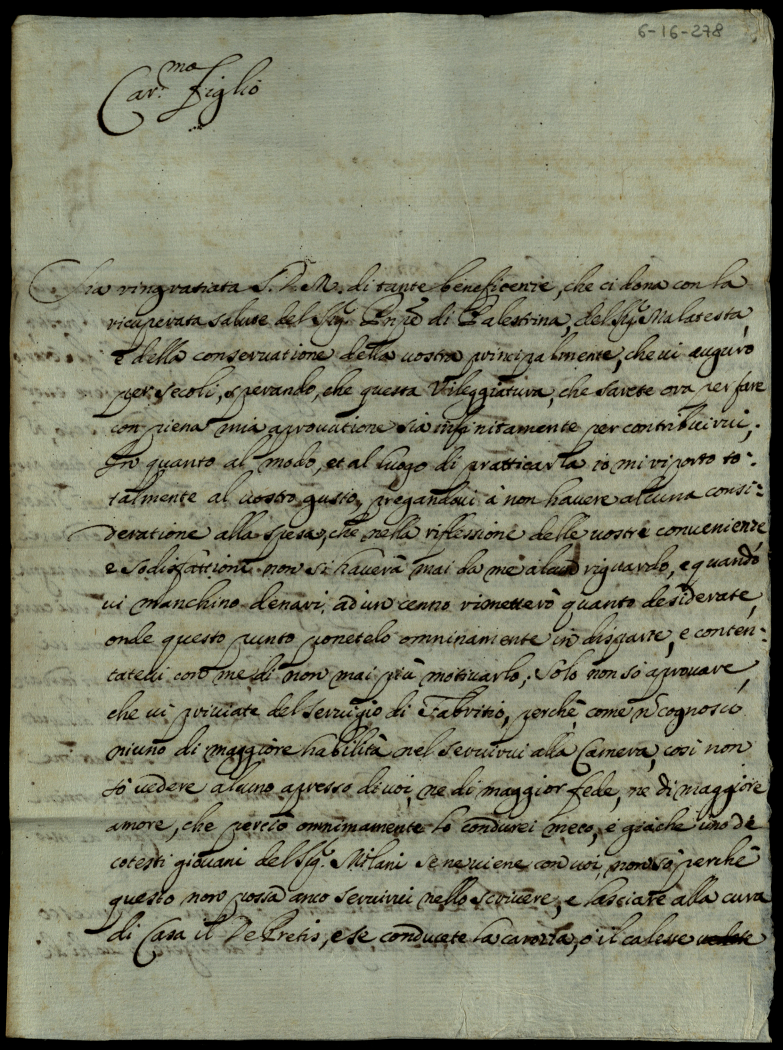 6-16-278
Car.mo Figlio
Sia ringratiata S. D. M. di tante beneficenze, che ci dona con la
ricuperata salute del Sig.r Prnpe di Palestrina, del Sig.r Malatesta,
e della conservatione della vostra principalmente, che vi auguro
per secoli, sperando, che questa Vileggiatura, che sarete ora per fare
con piena mia aprovatione sia infinitamente per contribuirui;
In quanto al modo, et al luogo di pratticarla io mi riporto to:
talmente al vostro gusto, pregandoui à non hauere alcuna consi:
deratione alla spesa, che nella riflessione delle vostre conuenienze,
e sodisfattioni non si hauerà mai da me alcun riguardo, e quando
ui manchino denari, ad un cenno rimetterò quanto desiderate,
onde questo punto ponetelo omninamente in disparte, e conten:
tateui con me di non mai più motiuarlo; Solo non sò aprouare,
che ui priuiate del seruigio di Fabritio, perche, come n cognosco
niuno di maggiore habilità nel seruirui alla Camera, così non
sò uedere alcuno apresso di uoi, ne di maggior fede, ne di maggiore
amore, che perciò omnimamente lo condurei meco, e giache uno de
cotesti giouani del Sig.r Milani se ne uiene con uoi, non sò perchè
questo non possa anco seruirui nello scriuere, e lasciare alla cura
di Casa il De Pretis, e se conducete la carozza, ò il calesse